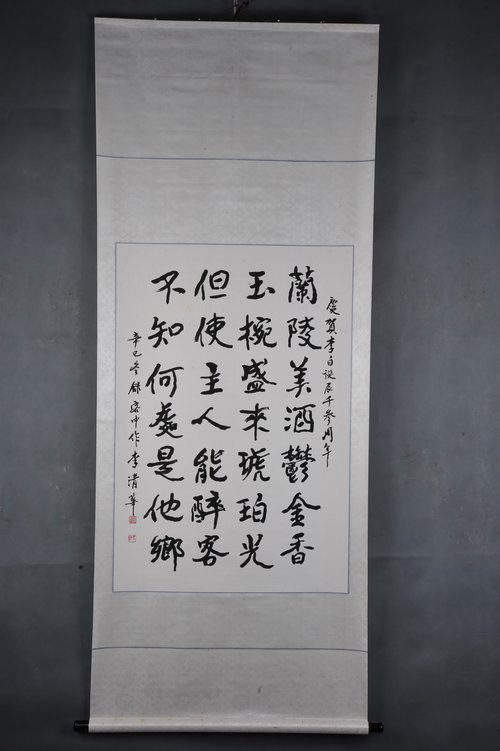 慶賀李白誕辰千叁周年
蘭陵美酒鬱金香
玉椀盛來琥珀光
但使主人能醉客
不知何處是他鄉
辛巳冬錄客中作李清華